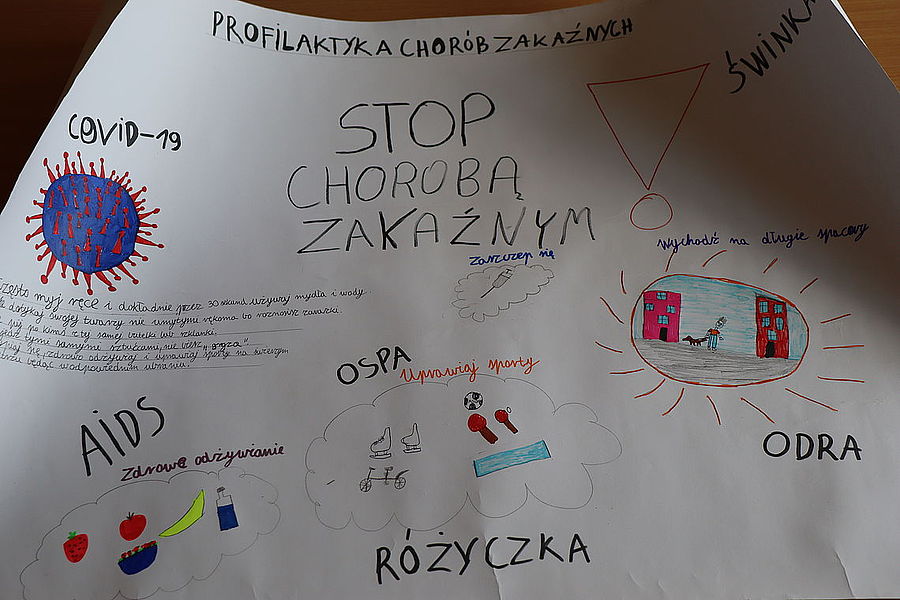 PROFILAKTYKA CHORÓB ZAKAŹNYCH
ŚWINKA
COVID-19
STOP
CHOROBĄ
ZAKAŹNYM
Zaszczep się
Wychodź na długie spacery
często myj ręce i dokładnie przez 30 sekund używaj mydła i wody.
dotykaj swojej twarzy nie umytymi rękoma bo roznosisz zarazki.
pij po kimś z tej samej butelki lub szklanki.
tymi samymi sztućcami, nie bierz „gryza”
się zdrowo odżywiaj i uprawiaj sporty na świeżym
będąc w odpowiednim ubraniu.
OSPA
Uprawiaj sporty
AiDS
Zdrowe odżywianie
ODRA
RÓŻYCZKA